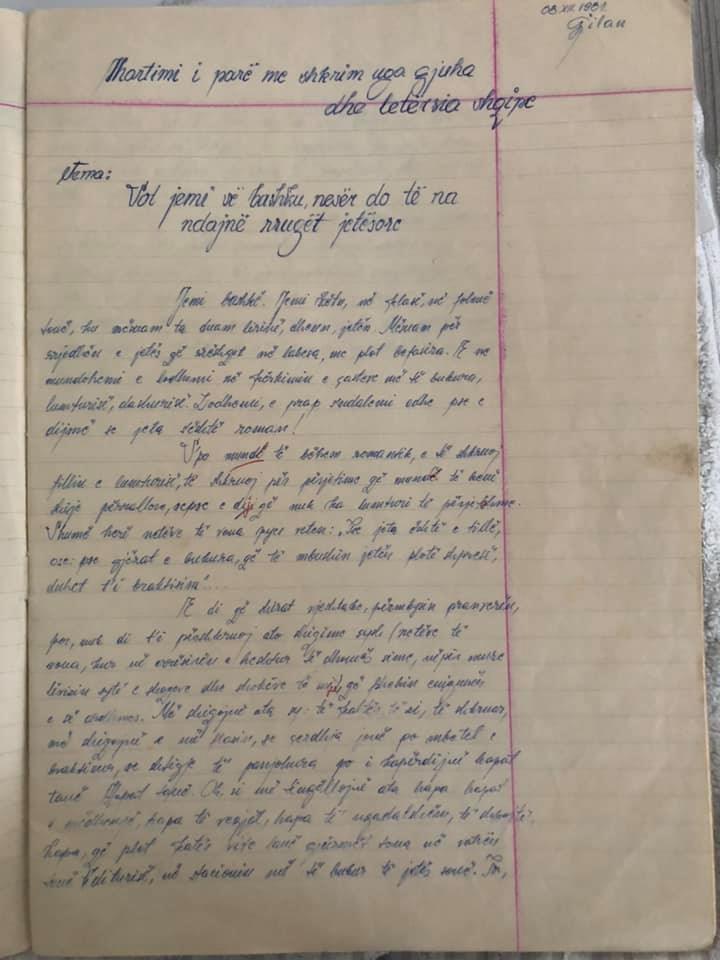 08 XII 1981.
Gjilan
Hartimi i parë me shkrim nga gjuha
dhe letërsia shqipe
Tema:
Sot jemi së bashku, nesër do të na
ndajnë rrugët jetësore
Jemi bashkë. Jemi këtu, në klasë, në
tonë, ku mësuam ta duam lirinë, dheun, jetën. Mësuam për
rrjedhën e jetës që rrëshqet në labesa, me plot befasira. E ne
mundohemi e lodhemi në kërkimin e çasteve më të bukura,
lumturisë, dashurisë. Lodhemi, e prap endalemi edhe pse e
dijmë se jeta është roman!
S'po mundë të bëhem romantik, e të shkruaj
fillin e lumturisë, të shkruaj për përjetime që mundë të kenë
diçje përmallore, sepse e dijë që nuk ka lumturi të përjetshme.
Shumë herë netëve të vona pyes veten: Pse jeta është e tillë,
ose: pse gjërat e bukura, që të mbushin jetën plotë shpresë,
duhet t'i braktisim"....
E di që lulet vjeshtake, përmbajn pranverën,
por, nuk di t'i përshkruaj ato netëve të
vona, kur në errësirën e heshtur të dhomës sime, nëpër mure
lëvizin sytë e shokëve dhe shoqeve të mij, që
e së ardhmes. Më shiqojnë ata sy të kaltër, të zi, të shkruar,
më shiqojnë e më thonin, se çerdhja jonë po mbetet e
braktisur, se dikush të panjohura po i hapërdijnë hapat
tanë. Oh, si më tingëllojnë ata hapa hapat
e mëdhenj, hapa të vegjël, hapa të ngadalshëm, të shpejtë
hapa, që plot katër vite lanë gjurmët tona në vatrën
tonë të diturisë, në stacionin më të bukur të jetës sonë. Po,